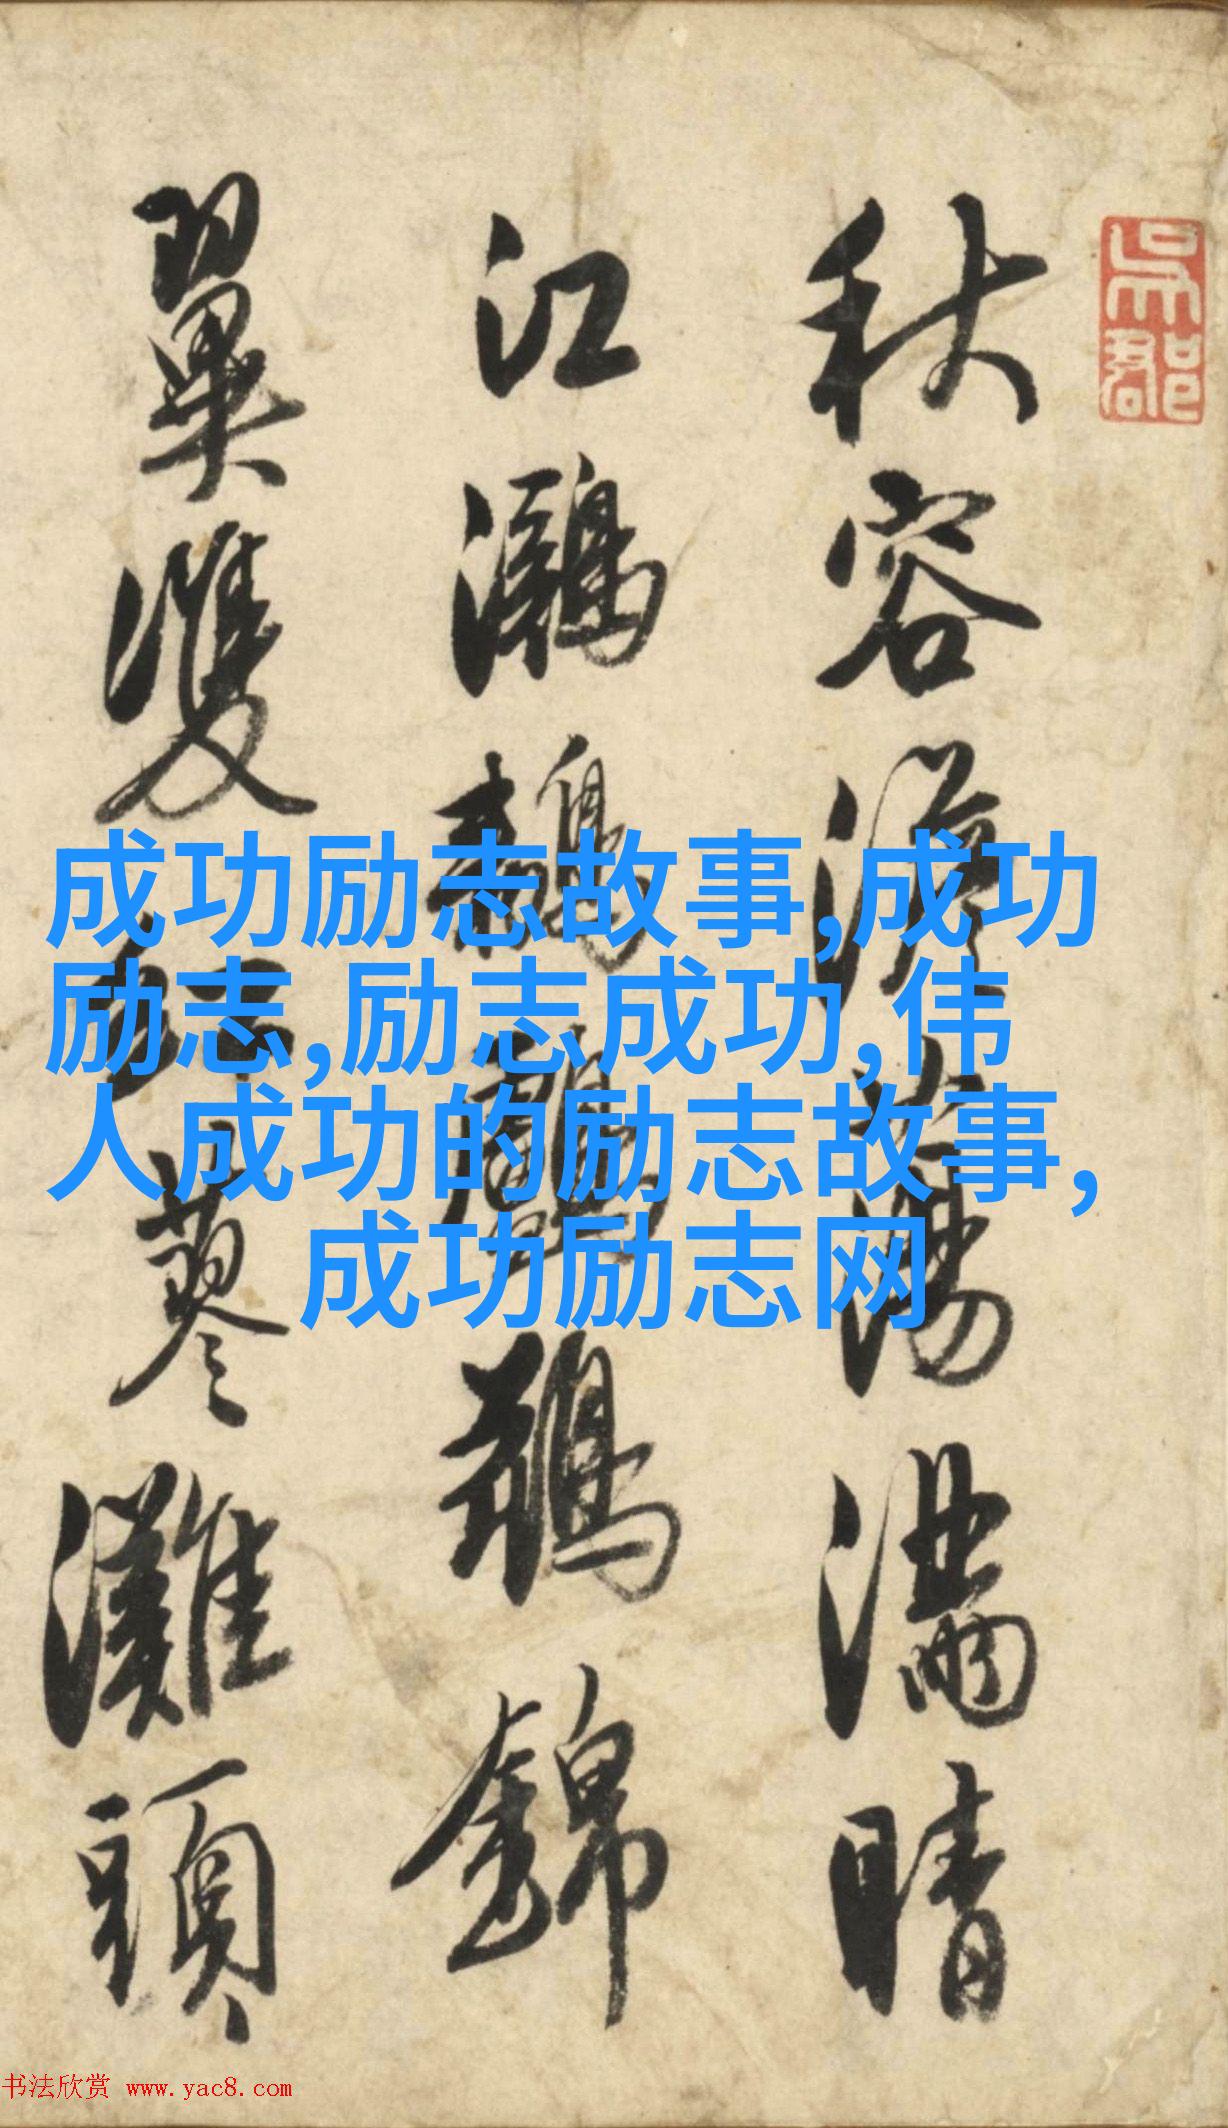 吳郡
秋容澹蕩滿晴
江鸂鶒錦
翼雙紅蓼灘頭
成功励志故事,成功
励志,励志成功,伟
人成功的励志故事,
成功励志网
书法欣赏 www.yac8.com